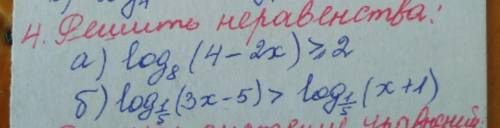 4. Решить неравенства:
а) log₈(4-2x) ≥ 2
б) log_{1/5}(3x-5) > log_{1/5}(x+1)